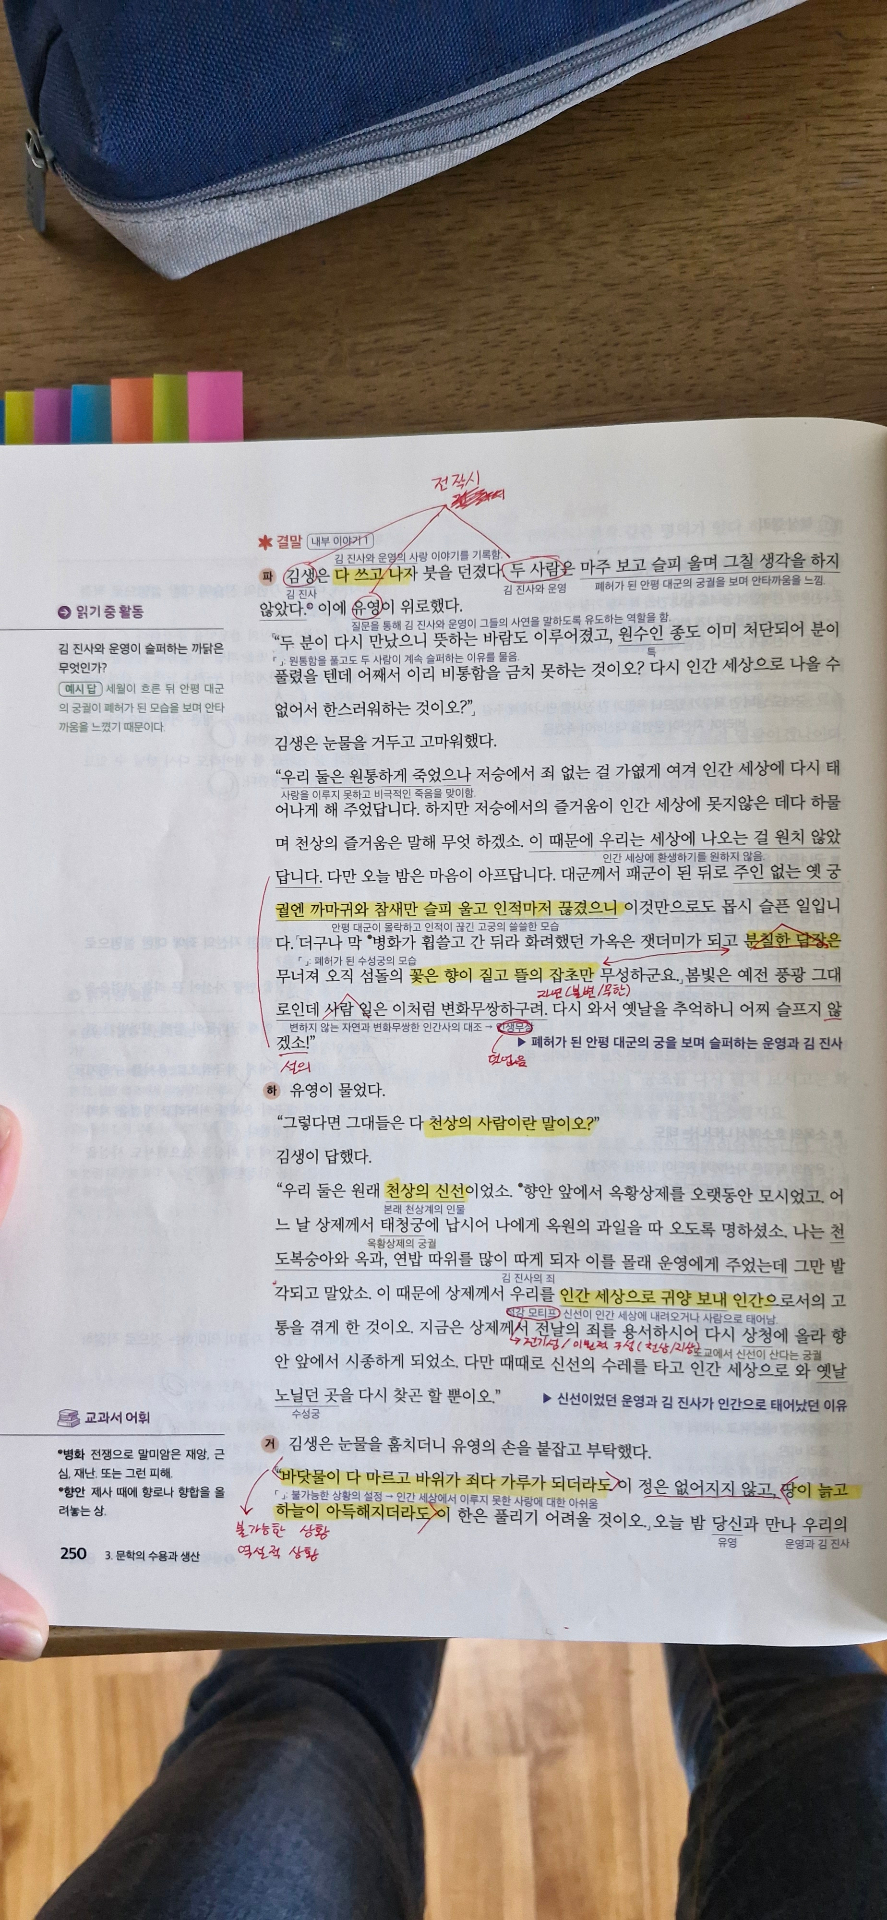 전작시
결말 내부 이야기 1
김 진사와 운영의 사랑 이야기를 기록함.
파 김생은 다 쓰고 나자 붓을 던졌다. 두 사람은 마주 보고 슬피 울며 그칠 생각을 하지
김 진사 김 진사와 운영 폐허가 된 안평 대군의 궁궐을 보며 안타까움을 느낌.
않았다. 이에 유영이 위로했다.
질문을 통해 김 진사와 운영이 그들의 사연을 말하도록 유도하는 역할을 함.
“두 분이 다시 만났으니 뜻하는 바람도 이루어졌고, 원수인 종도 이미 처단되어 분이
「 」: 원통함을 풀고도 두 사람이 계속 슬퍼하는 이유를 물음. 특
풀렸을 텐데 어째서 이리 비통함을 금치 못하는 것이오? 다시 인간 세상으로 나올 수
없어서 한스러워하는 것이오?”」
김생은 눈물을 거두고 고마워했다.
“우리 둘은 원통하게 죽었으나 저승에서 죄 없는 걸 가엾게 여겨 인간 세상에 다시 태
사랑을 이루지 못하고 비극적인 죽음을 맞이함.
어나게 해 주었답니다. 하지만 저승에서의 즐거움이 인간 세상에 못지않은 데다 하물
며 천상의 즐거움은 말해 무엇 하겠소. 이 때문에 우리는 세상에 나오는 걸 원치 않았
인간 세상에 환생하기를 원하지 않음.
답니다. 다만 오늘 밤은 마음이 아프답니다. 대군께서 패군이 된 뒤로 주인 없는 옛 궁
궐엔 까마귀와 참새만 슬피 울고 인적마저 끊겼으니 이것만으로도 몹시 슬픈 일입니
안평 대군이 몰락하고 인적이 끊긴 고궁의 쓸쓸한 모습
다. 「더구나 막 *병화가 휩쓸고 간 뒤라 화려했던 가옥은 잿더미가 되고 분칠한 담장은
「 」: 폐허가 된 수성궁의 모습
무너져 오직 섬돌의 꽃은 향이 짙고 뜰의 잡초만 무성하군요.」 봄빛은 예전 풍광 그대
자연(불변/무한)
로인데 사람 일은 이처럼 변화무쌍하구려. 다시 와서 옛날을 추억하니 어찌 슬프지 않
변하지 않는 자연과 변화무쌍한 인간사의 대조 → 인생무상
겠소!”
▶ 폐허가 된 안평 대군의 궁을 보며 슬퍼하는 운영과 김 진사
설의
덧없음
하 유영이 물었다.
“그렇다면 그대들은 다 천상의 사람이란 말이오?”
김생이 답했다.
“우리 둘은 원래 천상의 신선이었소. *향안 앞에서 옥황상제를 오랫동안 모시었고, 어
본래 천상계의 인물
느 날 상제께서 태청궁에 납시어 나에게 옥원의 과일을 따 오도록 명하셨소. 나는 천
옥황상제의 궁궐
도복숭아와 옥과, 연밥 따위를 많이 따게 되자 이를 몰래 운영에게 주었는데 그만 발
김 진사의 죄
각되고 말았소. 이 때문에 상제께서 우리를 인간 세상으로 귀양 보내 인간으로서의 고
적강 모티프 신선이 인간 세상에 내려오거나 사람으로 태어남.
통을 겪게 한 것이오. 지금은 상제께서 전날의 죄를 용서하시어 다시 상청에 올라 향
→ 전기성 / 이원적 구성 (천상/지상)
도교에서 신선이 산다는 궁궐
안 앞에서 시종하게 되었소. 다만 때때로 신선의 수레를 타고 인간 세상으로 와 옛날
노닐던 곳을 다시 찾곤 할 뿐이오.” ▶ 신선이었던 운영과 김 진사가 인간으로 태어났던 이유
수성궁
거 김생은 눈물을 훔치더니 유영의 손을 붙잡고 부탁했다.
“「바닷물이 다 마르고 바위가 죄다 가루가 되더라도 이 정은 없어지지 않고, 땅이 늙고
「 」: 불가능한 상황의 설정 → 인간 세상에서 이루지 못한 사랑에 대한 아쉬움
하늘이 아득해지더라도 이 한은 풀리기 어려울 것이오.」 오늘 밤 당신과 만나 우리의
유영 운영과 김 진사
불가능한 상황
역설적 상황
읽기 중 활동
김 진사와 운영이 슬퍼하는 까닭은
무엇인가?
예시 답 세월이 흐른 뒤 안평 대군
의 궁궐이 폐허가 된 모습을 보며 안타
까움을 느꼈기 때문이다.
교과서 어휘
*병화 전쟁으로 말미암은 재앙, 근
심, 재난. 또는 그런 피해.
*향안 제사 때에 향로나 향합을 올
려놓는 상.
250 3. 문학의 수용과 생산